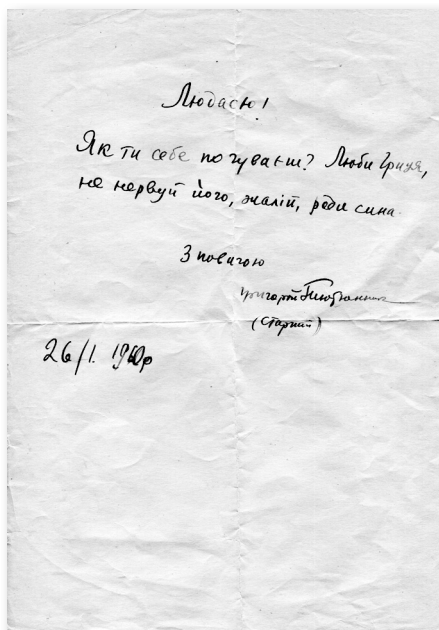 Людасю!
Як ти себе почуваєш? Люби Гриця,
не нервуй його, жалій, роди сина.
З повагою
Григорій Тютюнник
(Старший)
26/I. 1960р